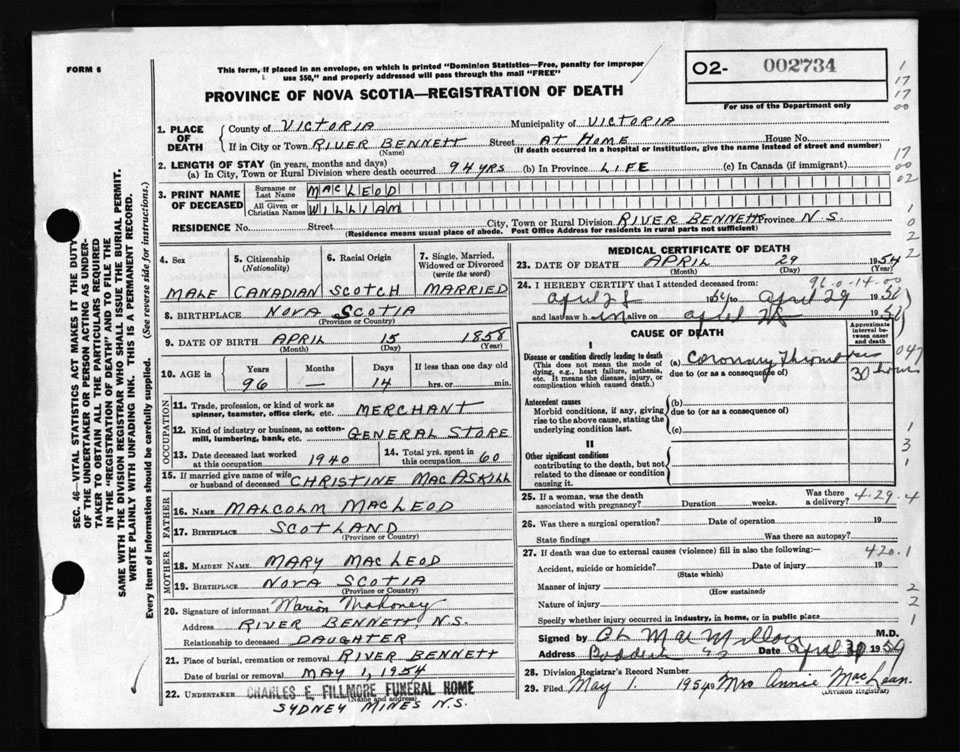 FORM 6
This form, if placed in an envelope, on which is printed "Dominion Statistics—Free, penalty for improper
use $50," and properly addressed will pass through the mail "FREE"
PROVINCE OF NOVA SCOTIA—REGISTRATION OF DEATH
O2- 002734
For use of the Department only
1. PLACE OF DEATH
County of VICTORIA Municipality of VICTORIA
If in City or Town RIVER BENNETT Street AT HOME House No.
(Name) (If death occurred in a hospital or institution, give the name instead of street and number)
2. LENGTH OF STAY (in years, months and days)
(a) In City, Town or Rural Division where death occurred 94 YRS (b) In Province LIFE (c) In Canada (if immigrant)
3. PRINT NAME OF DECEASED
Surname or Last Name MACLEOD
All Given or Christian Names WILLIAM
RESIDENCE No. Street City, Town or Rural Division RIVER BENNETT Province N.S.
(Residence means usual place of abode. Post Office Address for residents in rural parts not sufficient)
4. Sex MALE
5. Citizenship (Nationality) CANADIAN
6. Racial Origin SCOTCH
7. Single, Married, Widowed or Divorced (write the word) MARRIED
8. BIRTHPLACE NOVA SCOTIA
(Province or Country)
9. DATE OF BIRTH APRIL 15 1858
(Month) (Day) (Year)
10. AGE in Years Months Days If less than one day old
96 — 14 hrs. or min.
OCCUPATION
11. Trade, profession, or kind of work as MERCHANT
spinner, teamster, office clerk, etc.
12. Kind of industry or business, as cotton-
mill, lumbering, bank, etc. GENERAL STORE
13. Date deceased last worked
at this occupation 1940
14. Total yrs. spent in
this occupation 60
15. If married give name of wife
or husband of deceased CHRISTINE MACASKILL
FATHER
16. NAME MALCOLM MACLEOD
17. BIRTHPLACE SCOTLAND
(Province or Country)
MOTHER
18. MAIDEN NAME MARY MACLEOD
19. BIRTHPLACE NOVA SCOTIA
(Province or Country)
20. Signature of informant Marion Mahoney
Address RIVER BENNETT, N.S.
Relationship to deceased DAUGHTER
21. Place of burial, cremation or removal RIVER BENNETT
Date of burial or removal MAY 1, 1954
22. UNDERTAKER CHARLES E. FILLMORE FUNERAL HOME
(Name and address)
SYDNEY MINES N.S.
MEDICAL CERTIFICATE OF DEATH
23. DATE OF DEATH APRIL 29 1954
(Month) (Day) (Year)
24. I HEREBY CERTIFY that I attended deceased from: 96-0-14-00
April 28 19 to April 29 19
and last saw h im alive on 19
CAUSE OF DEATH
Approximate interval between onset and death
I
Disease or condition directly leading to death
(This does not mean the mode of
dying, e.g., heart failure, asthenia,
etc. It means the disease, injury, or
complication which caused death.)
(a) Coronary Thrombosis
due to (or as a consequence of) 30 hours
Antecedent causes
Morbid conditions, if any, giving
rise to the above cause, stating the
underlying condition last.
(b)
due to (or as a consequence of)
(c)
II
Other significant conditions
contributing to the death, but not
related to the disease or condition
causing it.
25. If a woman, was the death
associated with pregnancy? Duration weeks. Was there
a delivery? 4-29-4
26. Was there a surgical operation? Date of operation 19
State findings Was there an autopsy?
27. If death was due to external causes (violence) fill in also the following:— 420.1
Accident, suicide or homicide? Date of injury 19
(State which)
Manner of injury
(How sustained)
Nature of injury
Specify whether injury occurred in industry, in home, or in public place
Signed by M.D.
Address Baddeck N S Date April 30 1954
28. Division Registrar's Record Number
29. Filed May 1. 1954 Mrs Annie MacLean.
(Division Registrar)
SEC. 46—VITAL STATISTICS ACT MAKES IT THE DUTY
OF THE UNDERTAKER OR PERSON ACTING AS UNDER-
TAKER TO OBTAIN ALL THE PARTICULARS REQUIRED
IN THE "REGISTRATION OF DEATH" AND TO FILE THE
SAME WITH THE DIVISION REGISTRAR WHO SHALL ISSUE THE BURIAL PERMIT.
WRITE PLAINLY WITH UNFADING INK. THIS IS A PERMANENT RECORD.
Every item of information should be carefully supplied. (See reverse side for instructions.)
1
17
17
00
17
00
02
1
0
2
2
047
1
3
1
2
2
1